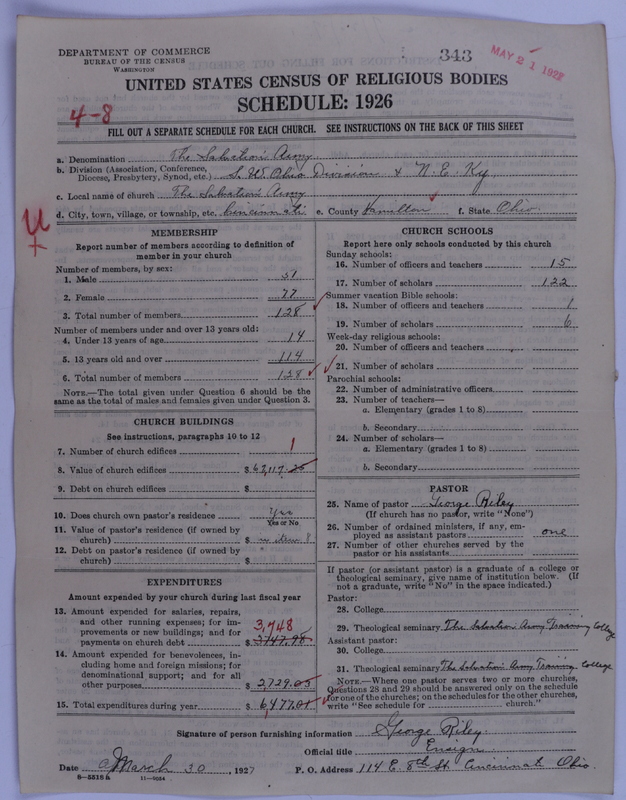 DEPARTMENT OF COMMERCE
BUREAU OF THE CENSUS
WASHINGTON
343
MAY 21 1927
UNITED STATES CENSUS OF RELIGIOUS BODIES
SCHEDULE: 1926
4-8
FILL OUT A SEPARATE SCHEDULE FOR EACH CHURCH. SEE INSTRUCTIONS ON THE BACK OF THIS SHEET
a. Denomination The Salvation Army
b. Division (Association, Conference, Diocese, Presbytery, Synod, etc.) S. W. Ohio Division & N. E. Ky.
c. Local name of church The Salvation Army
d. City, town, village, or township, etc. Cincinnati e. County Hamilton f. State Ohio.
U
MEMBERSHIP
Report number of members according to definition of
member in your church
Number of members, by sex:
1. Male 51
2. Female 77
3. Total number of members 128
Number of members under and over 13 years old:
4. Under 13 years of age 14
5. 13 years old and over 114
6. Total number of members 128
NOTE.—The total given under Question 6 should be the
same as the total of males and females given under Question 3.
CHURCH BUILDINGS
See instructions, paragraphs 10 to 12
7. Number of church edifices 1
8. Value of church edifices $62,117.25
9. Debt on church edifices $
10. Does church own pastor's residence Yes
Yes or No
11. Value of pastor's residence (if owned by
church) $ in item 8
12. Debt on pastor's residence (if owned by
church) $
EXPENDITURES
Amount expended by your church during last fiscal year
13. Amount expended for salaries, repairs,
and other running expenses; for im-
provements or new buildings; and for
payments on church debt $ 3747.98
3,748
14. Amount expended for benevolences, in-
cluding home and foreign missions; for
denominational support; and for all
other purposes 2,729.05
15. Total expenditures during year $ 6,477.01
CHURCH SCHOOLS
Report here only schools conducted by this church
Sunday schools:
16. Number of officers and teachers 15
17. Number of scholars 122
Summer vacation Bible schools:
18. Number of officers and teachers 1
19. Number of scholars 6
Week-day religious schools:
20. Number of officers and teachers
21. Number of scholars
Parochial schools:
22. Number of administrative officers
23. Number of teachers—
a. Elementary (grades 1 to 8)
b. Secondary
24. Number of scholars—
a. Elementary (grades 1 to 8)
b. Secondary
PASTOR
25. Name of pastor George Riley
(If church has no pastor, write "None")
26. Number of ordained ministers, if any, em-
ployed as assistant pastors one
27. Number of other churches served by the
pastor or his assistants
If pastor (or assistant pastor) is a graduate of a college or
theological seminary, give name of institution below. (If
not a graduate, write "No" in the space indicated.)
Pastor:
28. College
29. Theological seminary The Salvation Army Training College
Assistant pastor:
30. College
31. Theological seminary The Salvation Army Training College
NOTE.—Where one pastor serves two or more churches,
Questions 28 and 29 should be answered only on the schedule
for one of the churches; on the schedules for the other churches,
write "See schedule for church."
Signature of person furnishing information George Riley
Official title Ensign
Date March 30, 1927 P. O. Address 114 E. 8th St. Cincinnati Ohio.
8—5518a 11—9034